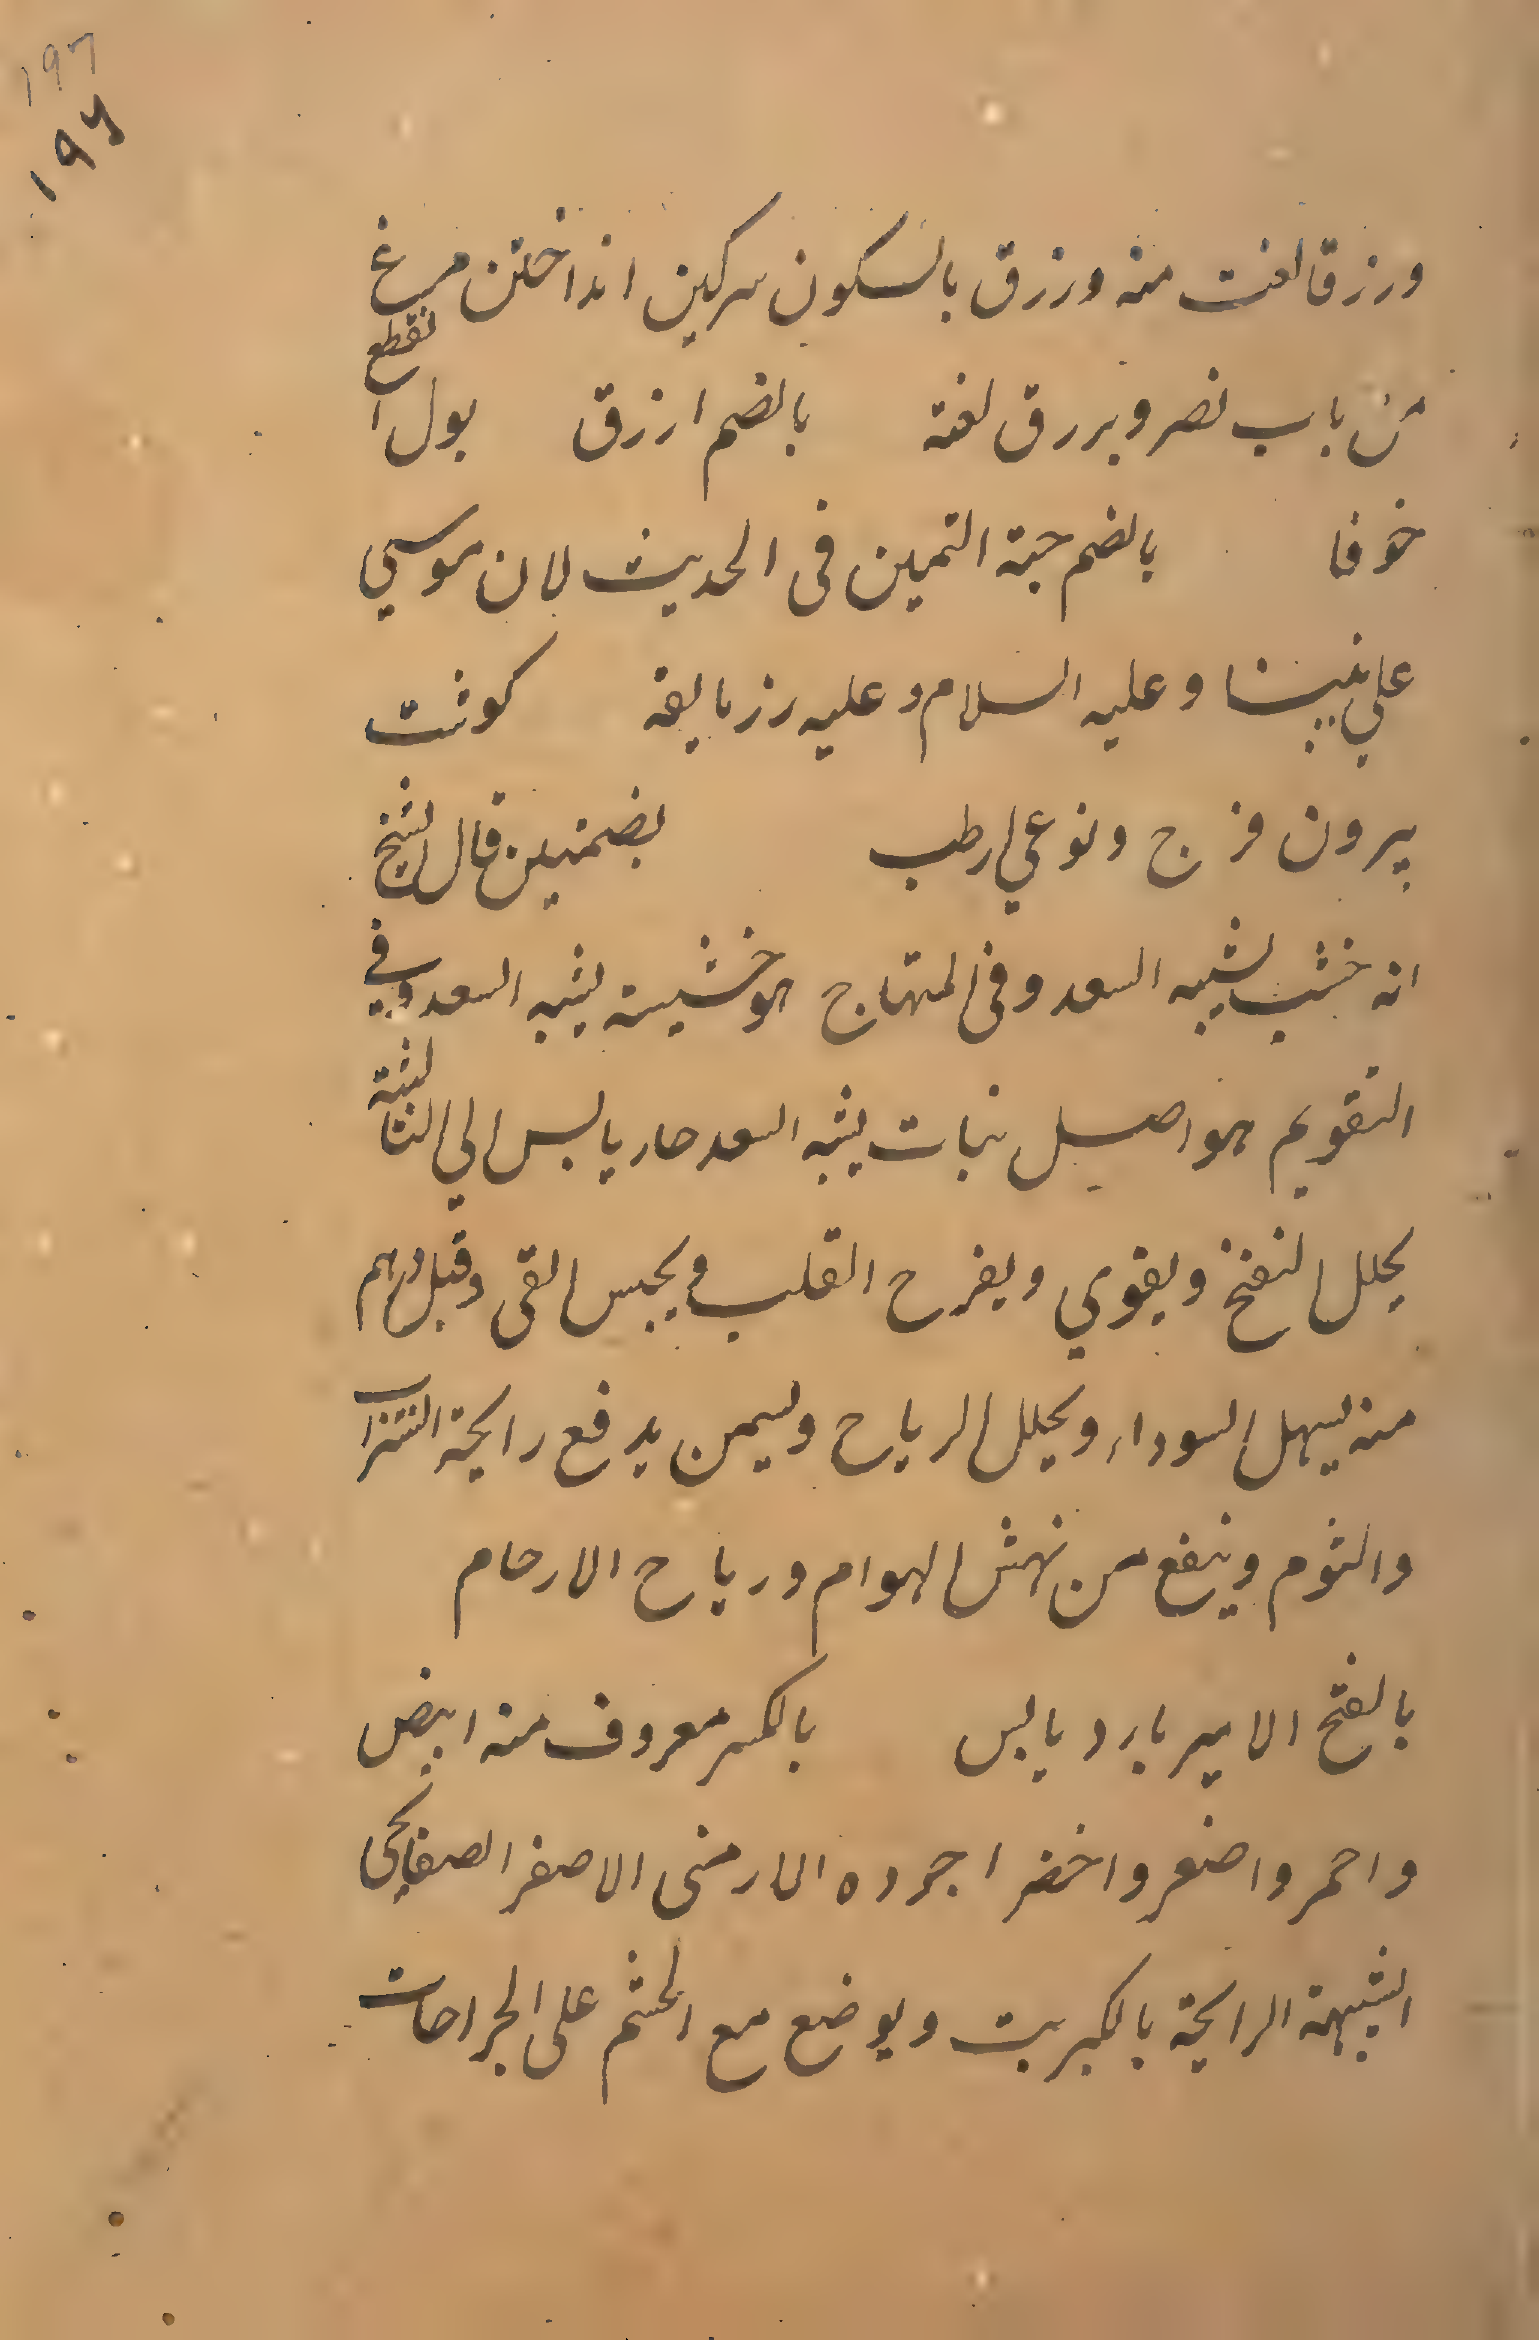 ۱۹۶
۱۹۶
ورزقا لغت منه وزرق بالسكون سركين انداختن مرغ
من باب نصر وبررق لغته بالضم ازرق بول انقطع
خوفا بالضم جبة التمين فى الحديث لان موسي
علي نبينا وعليه السلام وعليه رزمايقه كوشت
بيرون فرج ونوعي ارطب بضمتين قال الشيخ
انه خشب يشبه السعد وفى المنهاج هو خشبية يشبه السعد وفي
التقويم هو اصل نبات يشبه السعد حار يابس الي الثالثة
يحلل النفخ ويقوي ويفرح القلب ويحبس القى وقبل درهم
منه يسهل السوداء ويحلل الرياح ويسمن يدفع رايحة الشراب
والثوم وينفع من نهش الهوام ورياح الارحام
بالفتح الامير بارد يابس بالكسر معروف منه ابيض
واحمر واصفر واخضر اجوده الارمنى الاصفر الصفايحى
الشبيهة الرايحة بالكبريت ويوضع مع الشحم على الجراحات